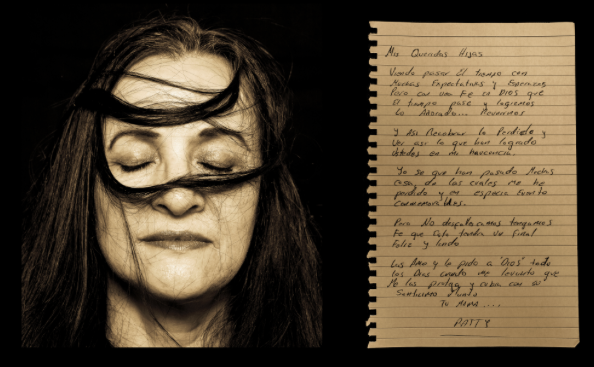 Mis Queridas Hijas
Viendo pasar El tiempo con
Muchas Expectativas y Esperanzas
Pero con una Fe en Dios que
El tiempo pase y logremos
Lo Añorado...
Y Asi Recobrar lo Perdido y
Ver asi lo que han logrado
Ustedes en mi
Yo se que han pasado Muchas
cosas, de las cuales me he
perdido y mi espacio
Pero No tengamos
Fe que Esto tendra un Final
Feliz y lindo
Las Amo y le pido a "Dios" todos
los Dias cuando me levanto que
Me las proteja y cubra con su
Manto
Tu Mama...
PATTY